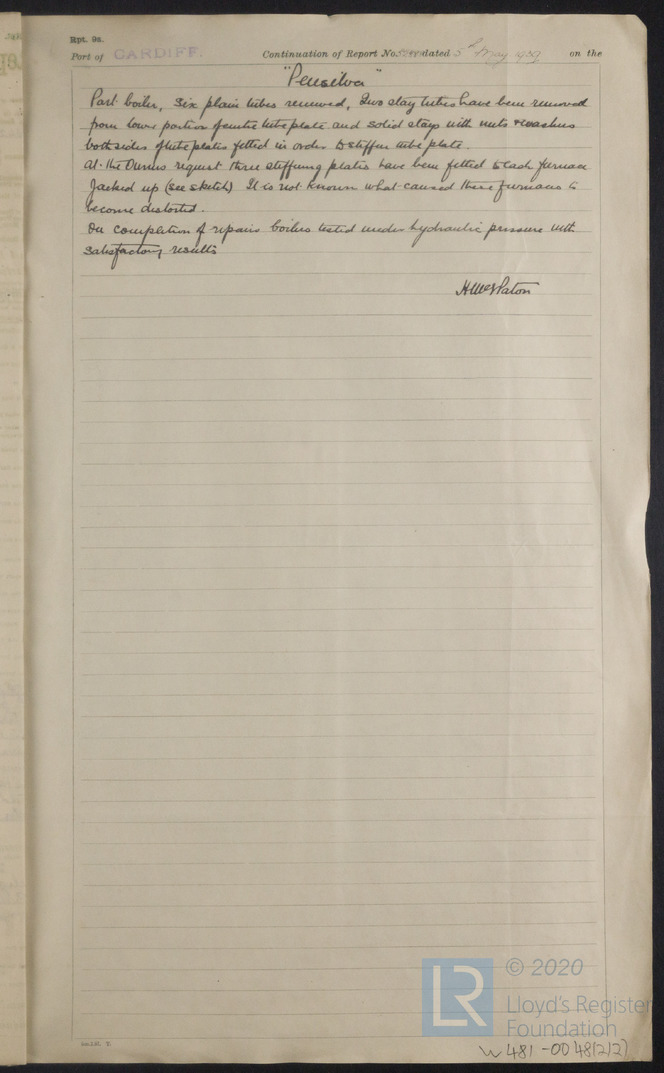 Rpt. 9a.
Port of CARDIFF. Continuation of Report No. dated 5th May 1909 on the
"Pensilva"
Port boiler, Six plain tubes renewed, Two stay tubes have been removed
from lower portion of centre tube plate and solid stays with nuts & washers
both sides of tube plates fitted in order to stiffen tube plate.
At the Owners request three stiffening plates have been fitted to each furnace
Jacked up (see sketch) It is not known what caused these furnaces to
become distorted.
On completion of repairs boilers tested under hydraulic pressure with
satisfactory results
Paton
LR © 2020
Lloyd's Register
Foundation
W481-0048(2/2)